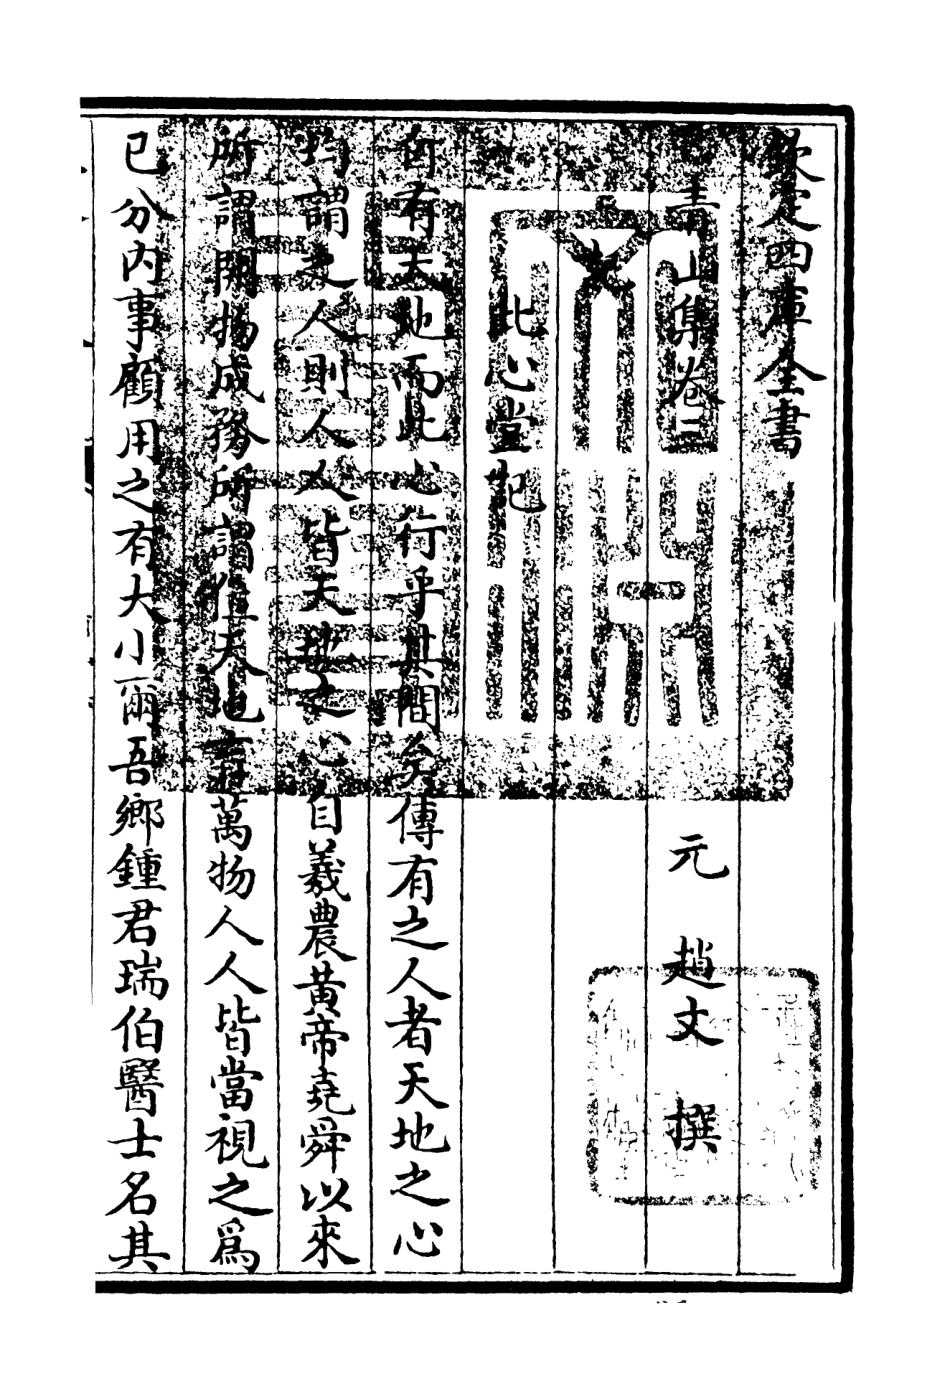 欽定四庫全書
青山集卷三
元 趙文 撰
此心堂記
自有天地而此心行乎其間矣傳有之人者天地之心
均謂之人則人人皆天地之心自羲農黃帝堯舜以來
所謂開物成務所謂位天地育萬物人人皆當視之為
已分内事顧用之有大小爾吾鄉鍾君瑞伯醫士名其